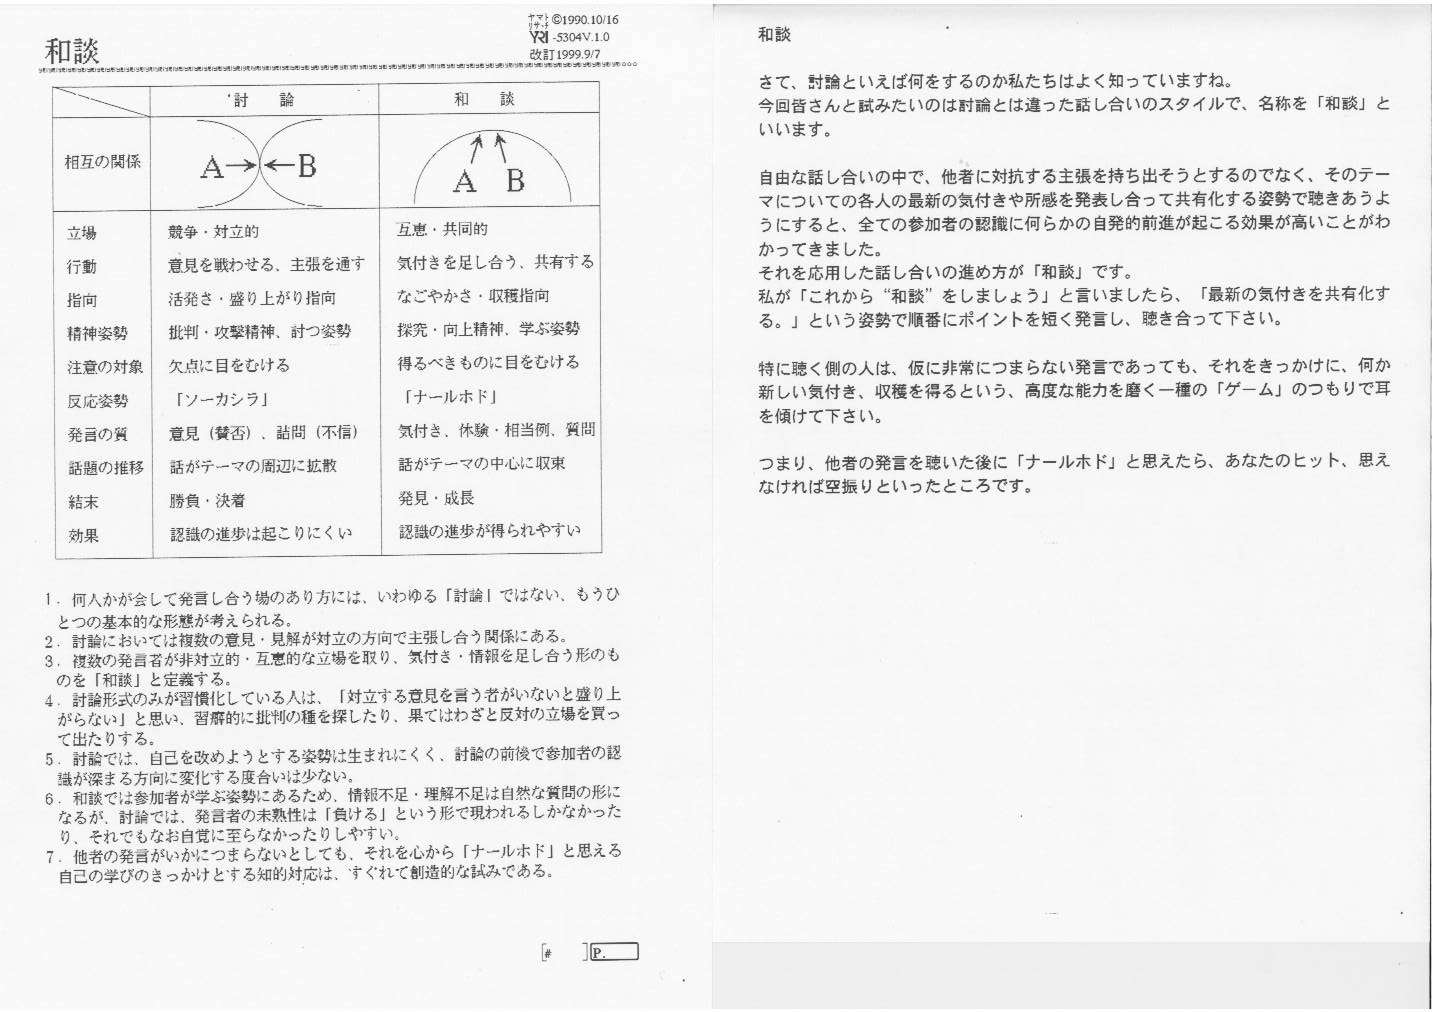 和談
ヤマト
リサーチ
©1990.10/16
YRI -5304V.1.0
改訂1999.9/7
討　論
和　談
相互の関係
A→←B
A B
立場 競争・対立的 互恵・共同的
行動 意見を戦わせる、主張を通す 気付きを足し合う、共有する
指向 活発さ・盛り上がり指向 なごやかさ・収穫指向
精神姿勢 批判・攻撃精神、討つ姿勢 探究・向上精神、学ぶ姿勢
注意の対象 欠点に目をむける 得るべきものに目をむける
反応姿勢 「ソーカシラ」 「ナールホド」
発言の質 意見（賛否）、詰問（不信） 気付き、体験・相当例、質問
話題の推移 話がテーマの周辺に拡散 話がテーマの中心に収束
結末 勝負・決着 発見・成長
効果 認識の進歩は起こりにくい 認識の進歩が得られやすい
1．何人かが会して発言し合う場のあり方には、いわゆる「討論」ではない、もうひ
とつの基本的な形態が考えられる。
2．討論においては複数の意見・見解が対立の方向で主張し合う関係にある。
3．複数の発言者が非対立的・互恵的な立場を取り、気付き・情報を足し合う形のも
のを「和談」と定義する。
4．討論形式のみが習慣化している人は、「対立する意見を言う者がいないと盛り上
がらない」と思い、習癖的に批判の種を探したり、果てはわざと反対の立場を買っ
て出たりする。
5．討論では、自己を改めようとする姿勢は生まれにくく、討論の前後で参加者の認
識が深まる方向に変化する度合いは少ない。
6．和談では参加者が学ぶ姿勢にあるため、情報不足・理解不足は自然な質問の形に
なるが、討論では、発言者の未熟性は「負ける」という形で現われるしかなかった
り、それでもなお自覚に至らなかったりしやすい。
7．他者の発言がいかにつまらないとしても、それを心から「ナールホド」と思える
自己の学びのきっかけとする知的対応は、すぐれて創造的な試みである。
[# ] P.
和談
さて、討論といえば何をするのか私たちはよく知っていますね。
今回皆さんと試みたいのは討論とは違った話し合いのスタイルで、名称を「和談」と
いいます。
自由な話し合いの中で、他者に対抗する主張を持ち出そうとするのでなく、そのテー
マについての各人の最新の気付きや所感を発表し合って共有化する姿勢で聴きあうよ
うにすると、全ての参加者の認識に何らかの自発的前進が起こる効果が高いことがわ
かってきました。
それを応用した話し合いの進め方が「和談」です。
私が「これから“和談”をしましょう」と言いましたら、「最新の気付きを共有化す
る。」という姿勢で順番にポイントを短く発言し、聴き合って下さい。
特に聴く側の人は、仮に非常につまらない発言であっても、それをきっかけに、何か
新しい気付き、収穫を得るという、高度な能力を磨く一種の「ゲーム」のつもりで耳
を傾けて下さい。
つまり、他者の発言を聴いた後に「ナールホド」と思えたら、あなたのヒット、思え
なければ空振りといったところです。